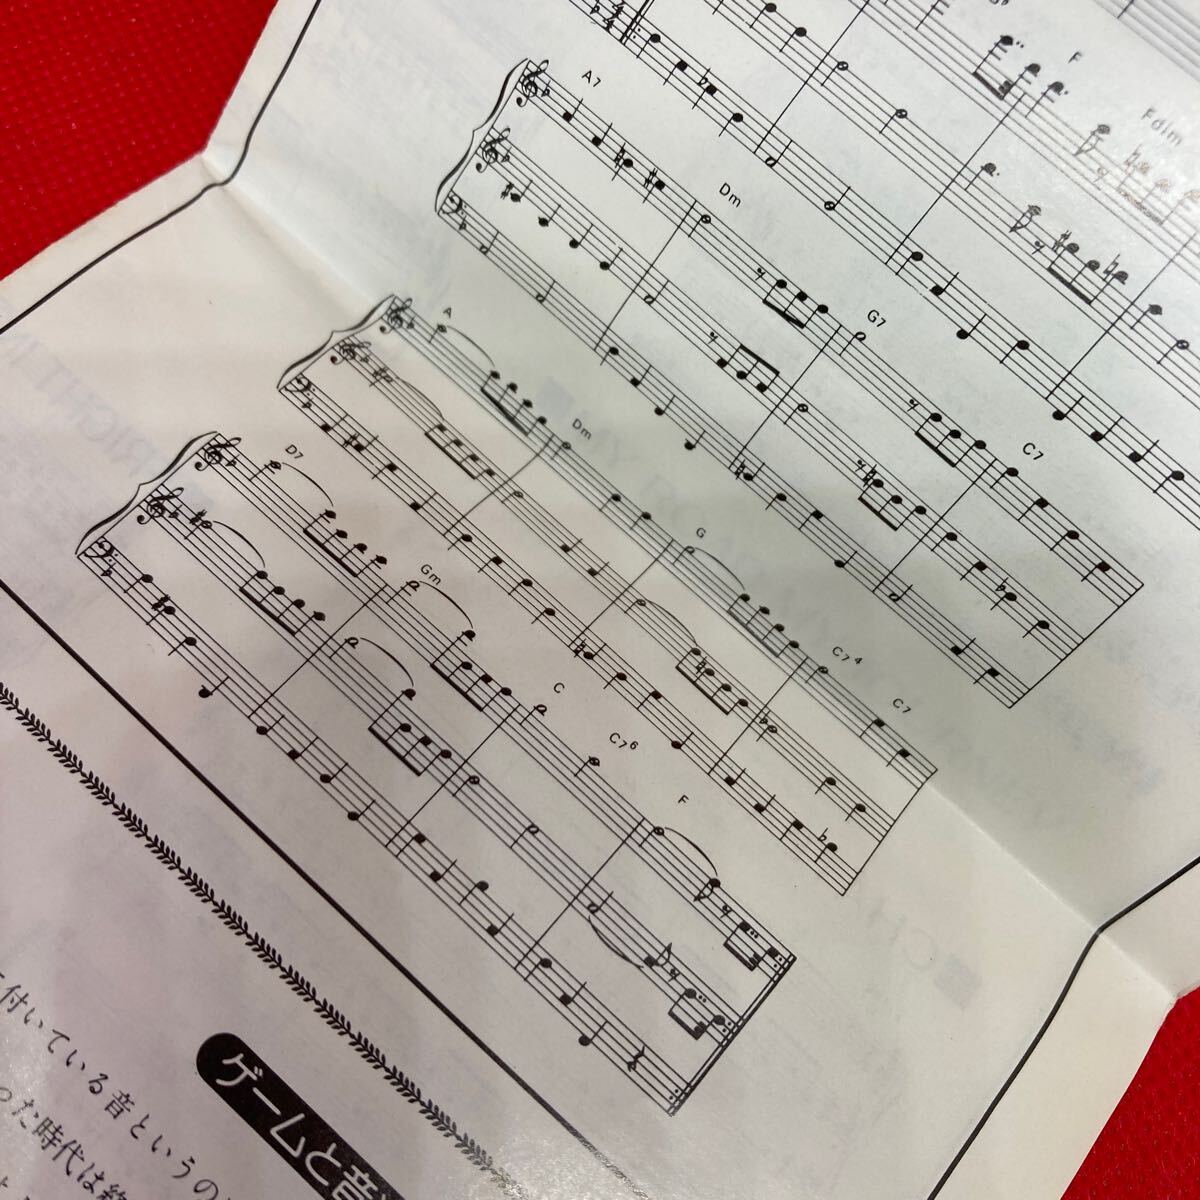 F
Fdim
A7
Dm
G7
C7
A
Dm
G
C7 4
C7
D7
Gm
C
C7 6
F
ゲームと音
付いている音というの
った時代は